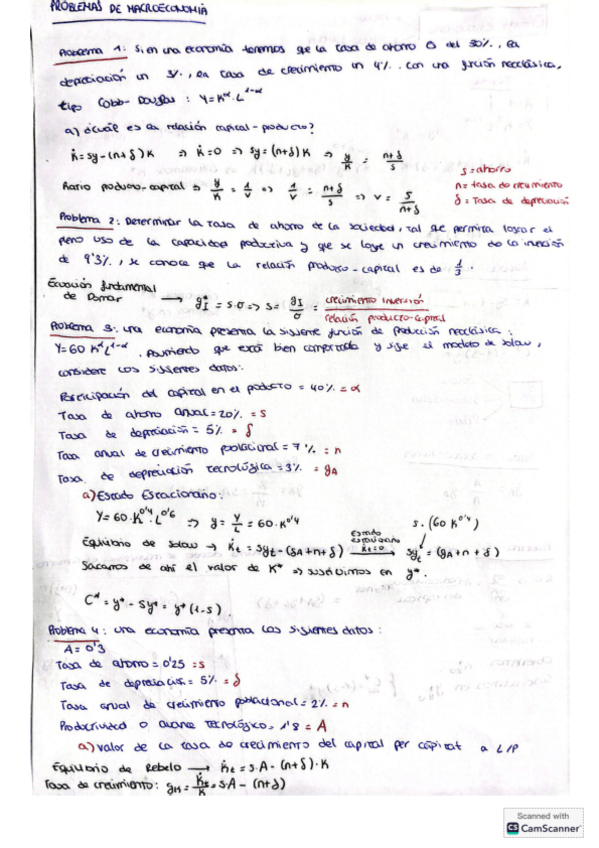 PROBLEMAS DE MACROECONOMÍA
Problema 1: Si en una economía tenemos que la tasa de ahorro es del 30%, la
depreciación un 3%, la tasa de crecimiento un 4%. Con una función neoclásica,
tipo Cobb-Douglas: Y=K^α·L^1-α
a) ¿cuál es la relación capital-producto?
K̇=sy-(n+δ)K ⇒ K̇=0 ⇒ sy=(n+δ)K ⇒ y/K = n+δ/s
s=ahorro
n=tasa de crecimiento
δ=Tasa de depreciación
Ratio producto-capital ⇒ y/K = 1/v ⇒ 1/v = n+δ/s ⇒ v = s/n+δ
Problema 2: Determinar la tasa de ahorro de la sociedad, tal que permita lograr el
pleno uso de la capacidad productiva y que se logre un crecimiento de la inversión
de 9'3%, se conoce que la relación producto-capital es de 1/3.
Ecuación fundamental
de Domar → g*I = s·σ ⇒ s = gI/σ = crecimiento inversión / relación producto-capital
Problema 3: una economía presenta la siguiente función de producción neoclásica:
Y=60 K^α L^1-α. Asumiendo que está bien comportada y sigue el modelo de Solow,
considere los siguientes datos:
Participación del capital en el producto = 40% = α
Tasa de ahorro anual = 20% = s
Tasa de depreciación = 5% = δ
Tasa anual de crecimiento poblacional = 7% = n
Tasa de depreciación tecnológica = 3% = gA
a) Estado Estacionario:
Y=60·K^0'4·L^0'6 ⇒ y = Y/L = 60·K^0'4
s·(60 K^0'4)
Equilibrio de Solow → K̇t = syt-(gA+n+δ) Estado estacionario K̇t=0 → sy*t = (gA+n+δ)
Sacamos de ahí el valor de K* ⇒ sustituimos en y*.
C* = y* - sy* = y*(1-s).
Problema 4: una economía presenta los siguientes datos:
A = 0'3
Tasa de ahorro = 0'25 = s
Tasa de depreciación = 5% = δ
Tasa anual de crecimiento poblacional = 2% = n
Productividad o avance tecnológico = 1'8 = A
a) valor de la tasa de crecimiento del capital per cápita a L/P
Equilibrio de Rebelo → K̇t = s·A - (n+δ)·K
Tasa de crecimiento: gK = K̇t/K = s·A - (n+δ)
Scanned with
CS CamScanner